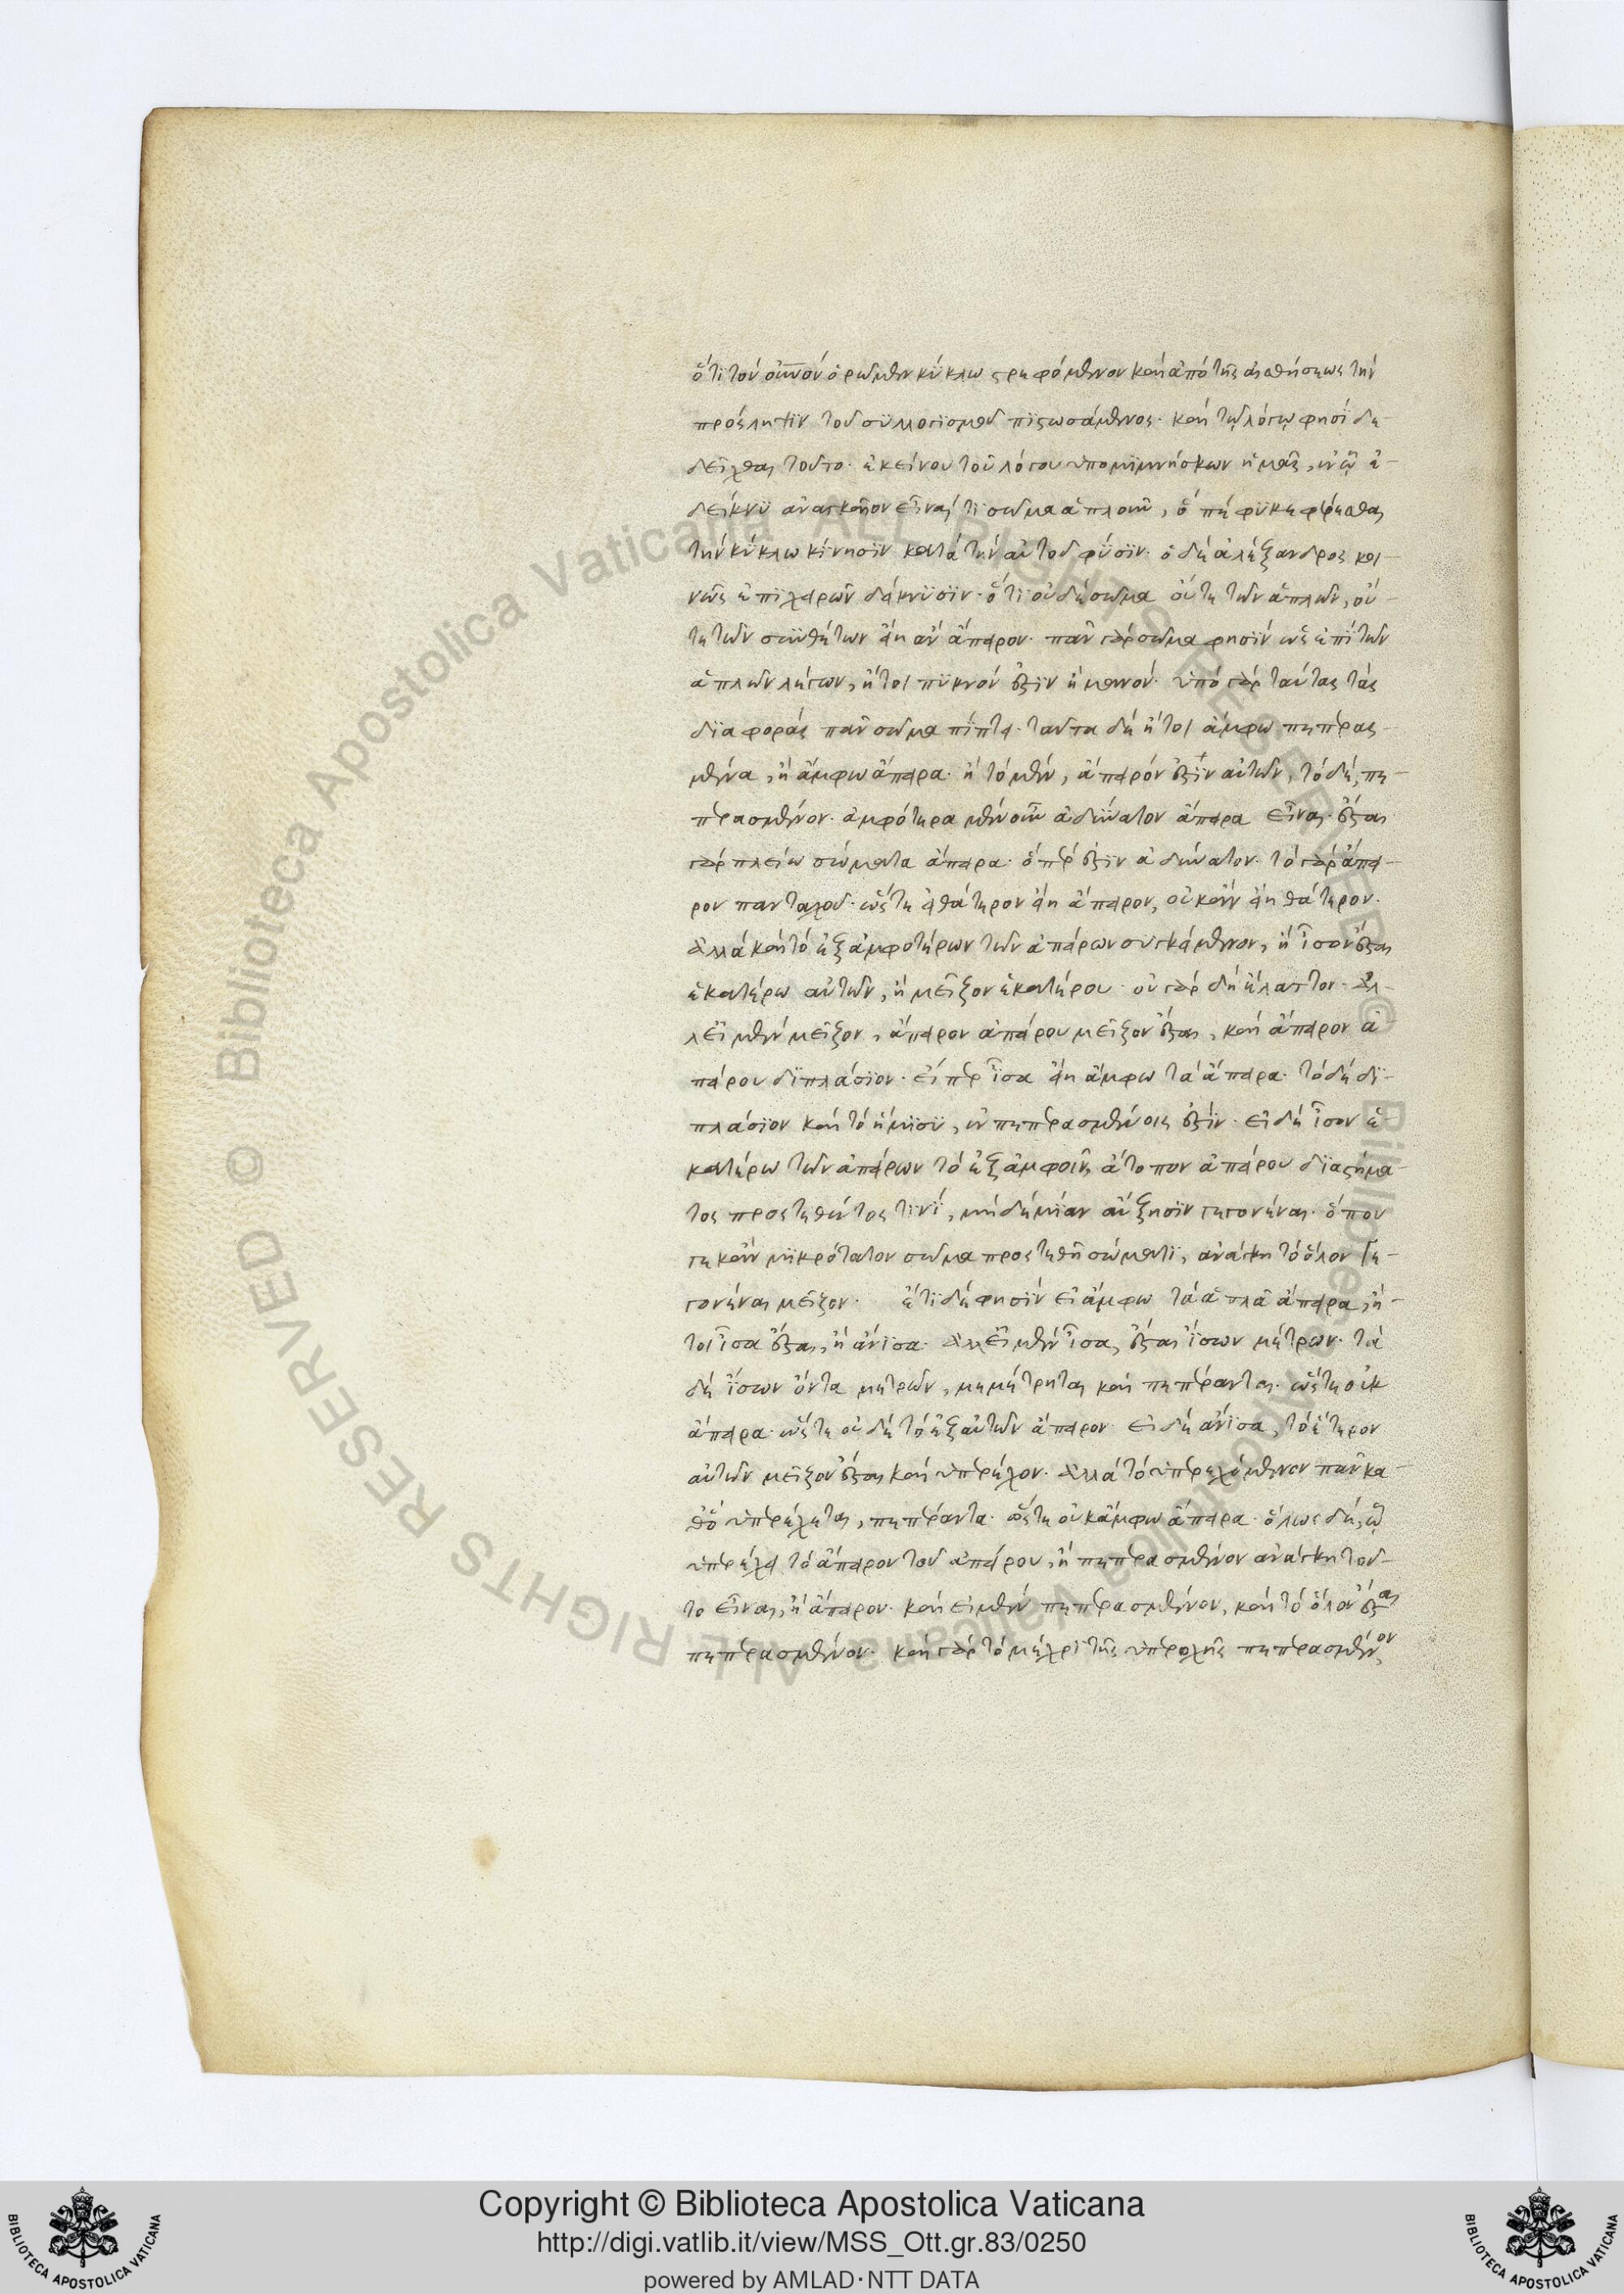 ὅτι τὸν οὐνον ὁρῶμεν κύκλω στρεφόμενον καὶ ἀπὸ τῆς αἰσθήσεως τὴν
πρόςληψιν τοῦ συλλογισμοῦ πιστωσάμενος· καὶ τῷ λόγῳ φησὶ δε
δεῖχθαι τοῦτο· ἐκείνου τοῦ λόγου ὑπομιμνήσκων ἡμᾶς, ἐν ᾧ ἐ-
δείκνυ ἀναγκαῖον εἶναί τι σῶμα ἁπλοῦν, ὃ πέφυκε φέρεσθαι
τὴν κύκλω κίνησιν κατὰ τὴν αὐτοῦ φύσιν· ὁ δὲ ἀλέξανδρος κοι-
νῶς ἐπιχειρῶν δείκνυσιν· ὅτι οὐδὲ σῶμα οὔτε τῶν ἁπλῶν, οὔ-
τε τῶν συνθέτων εἴη ἂν ἄπειρον· πᾶν γὰρ σῶμα φησὶν ὡς ἐπὶ τῶν
ἁπλῶν λέγων, ἤτοι πυκνόν ἐστιν ἢ μανόν· ὑπὸ γὰρ ταύτας τὰς
διαφορὰς πᾶν σῶμα πίπτει· ταῦτα δὲ ἤτοι ἄμφω πεπερας-
μένα, ἢ ἄμφω ἄπειρα· ἢ τὸ μὲν, ἄπειρόν ἐστιν αὐτῶν, τὸ δὲ, πε-
περασμένον· ἀμφότερα μὲν οὖν ἀδύνατον ἄπειρα εἶναι· ἔσται
γὰρ πλείω σώματα ἄπειρα· ὅπερ ἐστὶν ἀδύνατον· τὸ γὰρ ἄπει-
ρον πανταχοῦ· ὥςτε εἰ θάτερον εἴη ἄπειρον, οὐκ ἂν εἴη θάτερον·
ἀλλὰ καὶ τὸ ἐξ ἀμφοτέρων τῶν ἀπείρων συγκείμενον, ἢ ἴσον ἔσται
ἑκατέρω αὐτῶν, ἢ μεῖζον ἑκατέρου· οὐ γὰρ δὴ ἔλαττον· ἀλ-
λ' εἰ μὲν μεῖζον, ἄπειρον ἀπείρου μεῖζον ἔσται, καὶ ἄπειρον ἀ
πείρου διπλάσιον· εἴπερ ἴσα εἴη ἄμφω τὰ ἄπειρα· τὸ δὲ δι-
πλάσιον καὶ τὸ ἥμισυ, ἐν πεπερασμένοις ἐστίν· εἰ δὲ ἴσον ἑ
κατέρω τῶν ἀπείρων τὸ ἐξ ἀμφοῖν, ἄτοπον ἀπείρου διαστήμα-
τος προςτεθέντος τινὶ, μηδεμίαν αὔξησιν γεγονέναι· ὅπου
γε κἂν μικρότατον σῶμα προςτεθῇ σώματι, ἀνάγκη τὸ ὅλον γε-
γονέναι μεῖζον· ἔτι δὲ φησὶν εἰ ἄμφω τὰ ἁπλᾶ ἄπειρα, ἤ-
τοι ἴσα ἔσται, ἢ ἄνισα· ἀλλ' εἰ μὲν ἴσα, ἔσται ἴσων μέτρων· τὰ
δὲ ἴσων ὄντα μετρῶν, μεμέτρηται καὶ πεπέρανται· ὥςτε οὐκ
ἄπειρα· ὥςτε οὐδὲ τὸ ἐξ αὐτῶν ἄπειρον· εἰ δὲ ἄνισα, τὸ ἕτερον
αὐτῶν μεῖζον ἔσται καὶ ὑπερέχον· ἀλλὰ τὸ ὑπερεχόμενον πᾶν κα-
θὸ ὑπερέχεται, πεπέρανται· ὥςτε οὐκ ἄμφω ἄπειρα· ὅλως δὲ, ᾧ
ὑπερέχει τὸ ἄπειρον τοῦ ἀπείρου, ἢ πεπερασμένον ἀνάγκη τοῦ-
το εἶναι, ἢ ἄπειρον· καὶ εἰ μὲν πεπερασμένον, καὶ τὸ ὅλον ἔσται
πεπερασμένον· καὶ γὰρ τὸ μέχρι τῆς ὑπεροχῆς πεπερασμένον,